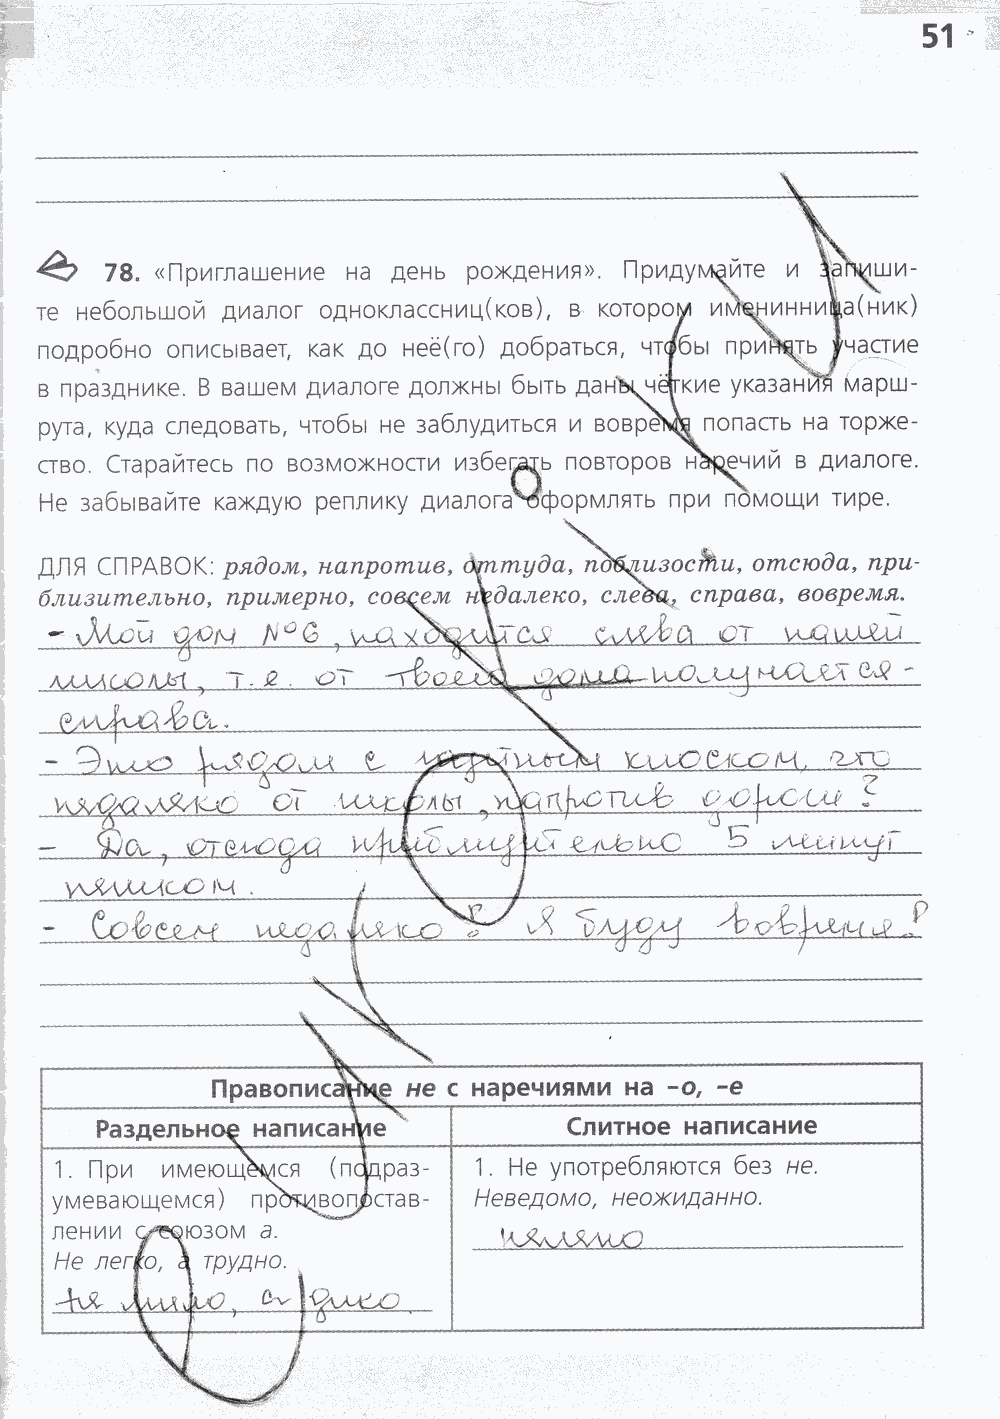 51
78. «Приглашение на день рождения». Придумайте и запиши-
те небольшой диалог одноклассниц(ков), в котором именинница(ник)
подробно описывает, как до неё(го) добраться, чтобы принять участие
в празднике. В вашем диалоге должны быть даны чёткие указания марш-
рута, куда следовать, чтобы не заблудиться и вовремя попасть на торже-
ство. Старайтесь по возможности избегать повторов наречий в диалоге.
Не забывайте каждую реплику диалога оформлять при помощи тире.
ДЛЯ СПРАВОК: рядом, напротив, оттуда, поблизости, отсюда, при-
близительно, примерно, совсем недалеко, слева, справа, вовремя.
- Мой дом №6, находится слева от нашей
школы, т.е. от твоего дома получается -
справа.
- Это рядом с газетным киоском, что
недалеко от школы, напротив дороги?
- Да, отсюда приблизительно 5 минут
пешком.
- Совсем недалеко! Я буду вовремя!
Правописание не с наречиями на –о, –е
Раздельное написание
Слитное написание
1. При имеющемся (подраз-
умевающемся) противопостав-
лении с союзом а.
Не легко, а трудно.
не мило, а дико.
1. Не употребляются без не.
Неведомо, неожиданно.
нелепо